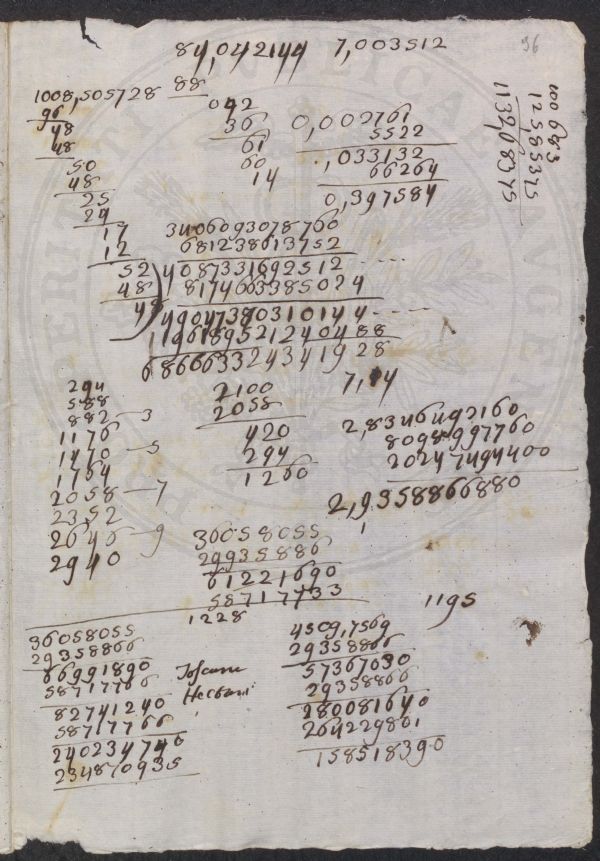 96
84,042144 7,003512
88
1008,505728
96
48
48
50
48
25
24
17
12
52
48
48
042
36
61
60
14
0,002761
5522
,033132
66264
0,397584
100683
125,85375
1132,68375
3406093078760
681238613752
4087331692512
817466385024
49047380310144
1196189521240488
686663324341928
7,14
294
588
882 — 3
1176
1470 — 5
1764
2058 — 7
2352
2646 — 9
2940
2100
2058
420
294
1260
2,8346492160
8098997760
20247494400
2,9358866880
36058055
29935886
61221690
58717733
1228
1195
36058055
29358866
66991890
58717766
82741240
58717766
240234740
234870935
Toscane
4509,7569
29358866
57367030
29358866
280081640
264229861
158518390